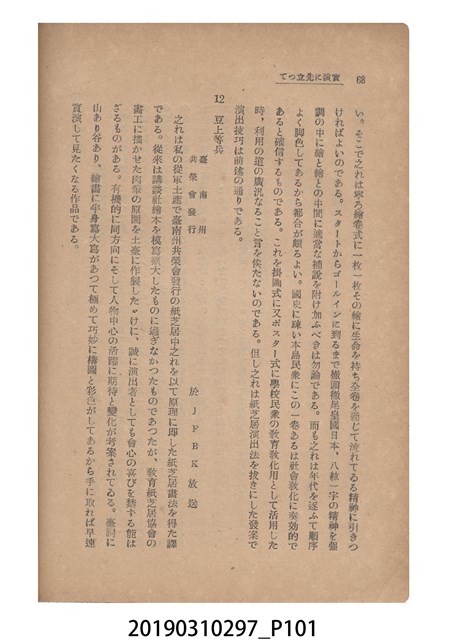 68
實演に先立つて
い。そこで之れは寧ろ繪卷式に一枚一枚その繪に生命を持ち全卷を通じて流れてゐる精神に引きつ
ければよいのである。スタートからゴールインに到るまで徹頭徹尾皇國日本、八紘一宇の精神を强
調の中に繪と繪との中間に適當な補說を附け加ふべきは勿論である。而も之れは年代を逐ふて順序
よく脚色してあるから都合が頗るよい。國史に疎い本島民衆にこの一卷あるは社會敎化に奏効的で
あると確信するものである。これを掛圖式に又ポスター式に學校民衆の敎育敎化用として活用した
時、利用の道の廣汎なること言を俟たないのである。但し之れは紙芝居演出法を拔きにした發案で
演出技巧は前述の通りである。
12 豆上等兵
臺南州
共榮會發行
於JFBK放送
之れは私の從軍土產で臺南州共榮會發行の紙芝居中之れを以て原理に卽した紙芝居畫法を得た譯
である。從來は講談社繪本を模寫擴大したものに過ぎなかつたものであつたが、敎育紙芝居協會の
畫工に描かせた肉筆の原圖を土臺に作製しただけに、誠に演出者としても會心の喜びを禁ずる能は
ざるものがある。有機的に同方向にそして人物中心の活躍に期待と變化が考案されてゐる。臺詞に
山あり谷あり、繪畫に半身寫大寫があつて極めて巧妙に構圖と彩色がしてあるから手に取れば早速
實演して見たくなる作品である。
20190310297_P101